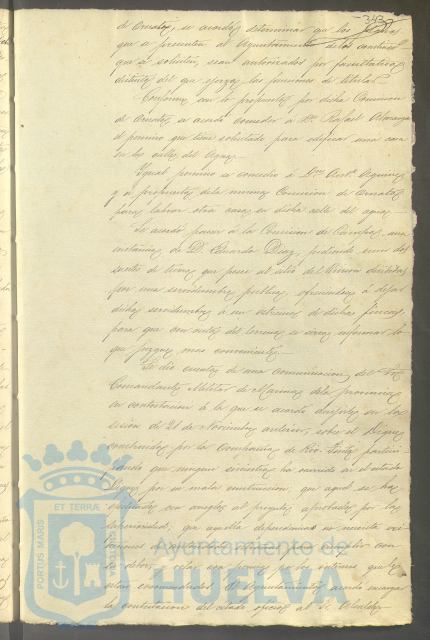 343
de Ornato, se acordó determinar que los
que se presenten al Ayuntamiento de las
que se soliciten, sean autorizados por facultativos
distintos del que ejerza las funciones de titular.
Conforme con lo propuesto por dicha Comision
de Ornato, se acordó conceder á Dn. Rafael
el permiso que tiene solicitado para edificar una casa
en la calle del Agua.
Igual permiso se concedió á Dn. Antº.
y á propuesta de la misma Comision de Ornato
para labrar otra casa en dicha calle del agua.
Se acordó pasar á la Comision de Campo, una
instancia de D. Eduardo Diaz, pidiendo unir dos
suertes de tierra que posee al sitio del Rincon divididas
por una servidumbre publica, ofreciendo á dejar
dicha servidumbre á un estremo de dichas fincas
para que con vista del terreno se sirva informar lo
que juzgue mas conveniente.
Se dió cuenta de una comunicacion del Sr.
Comandante Militar de Marina de la provincia
en contestacion á la que se acordó dirijirle en la
sesion de 21 de Noviembre anterior, sobre el Dique
construido por la Compañia de Rio-Tinto, partici-
pando que ningun siniestro ha ocurrido en el citado
Dique por su mala construccion, que aquel se ha
con arreglo al proyecto aprobado por la
Superioridad, que aquella dependencia no necesita
para cumplir con
su deber, y
el Ayuntamiento acordó
la contestacion del citado oficio al Sr. Alcalde
Ayuntamiento de
HUELVA
PORTUS MARIS
ET TERRAE
CUSTODIA